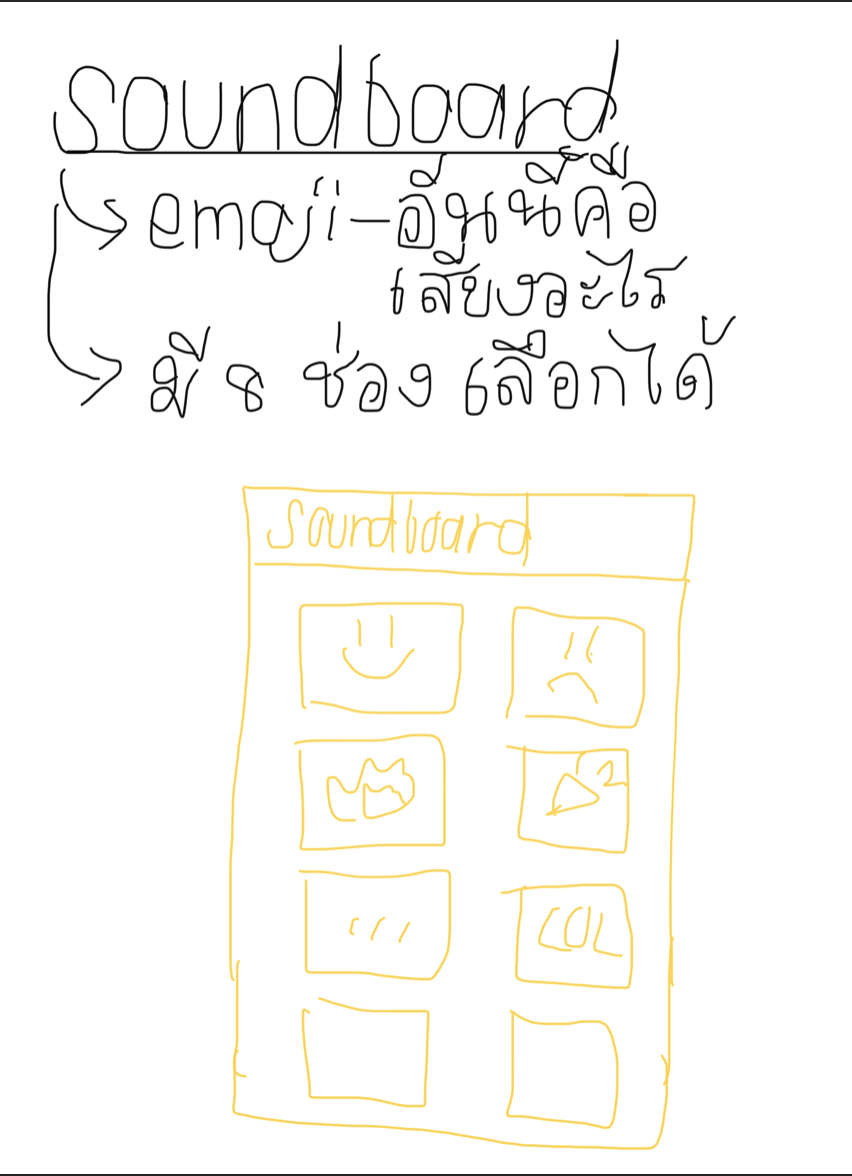 soundboard
emoji-อันนี้คือ
เสียงอะไร
มี 8 ช่อง เลือกได้
soundboard
...
LOL